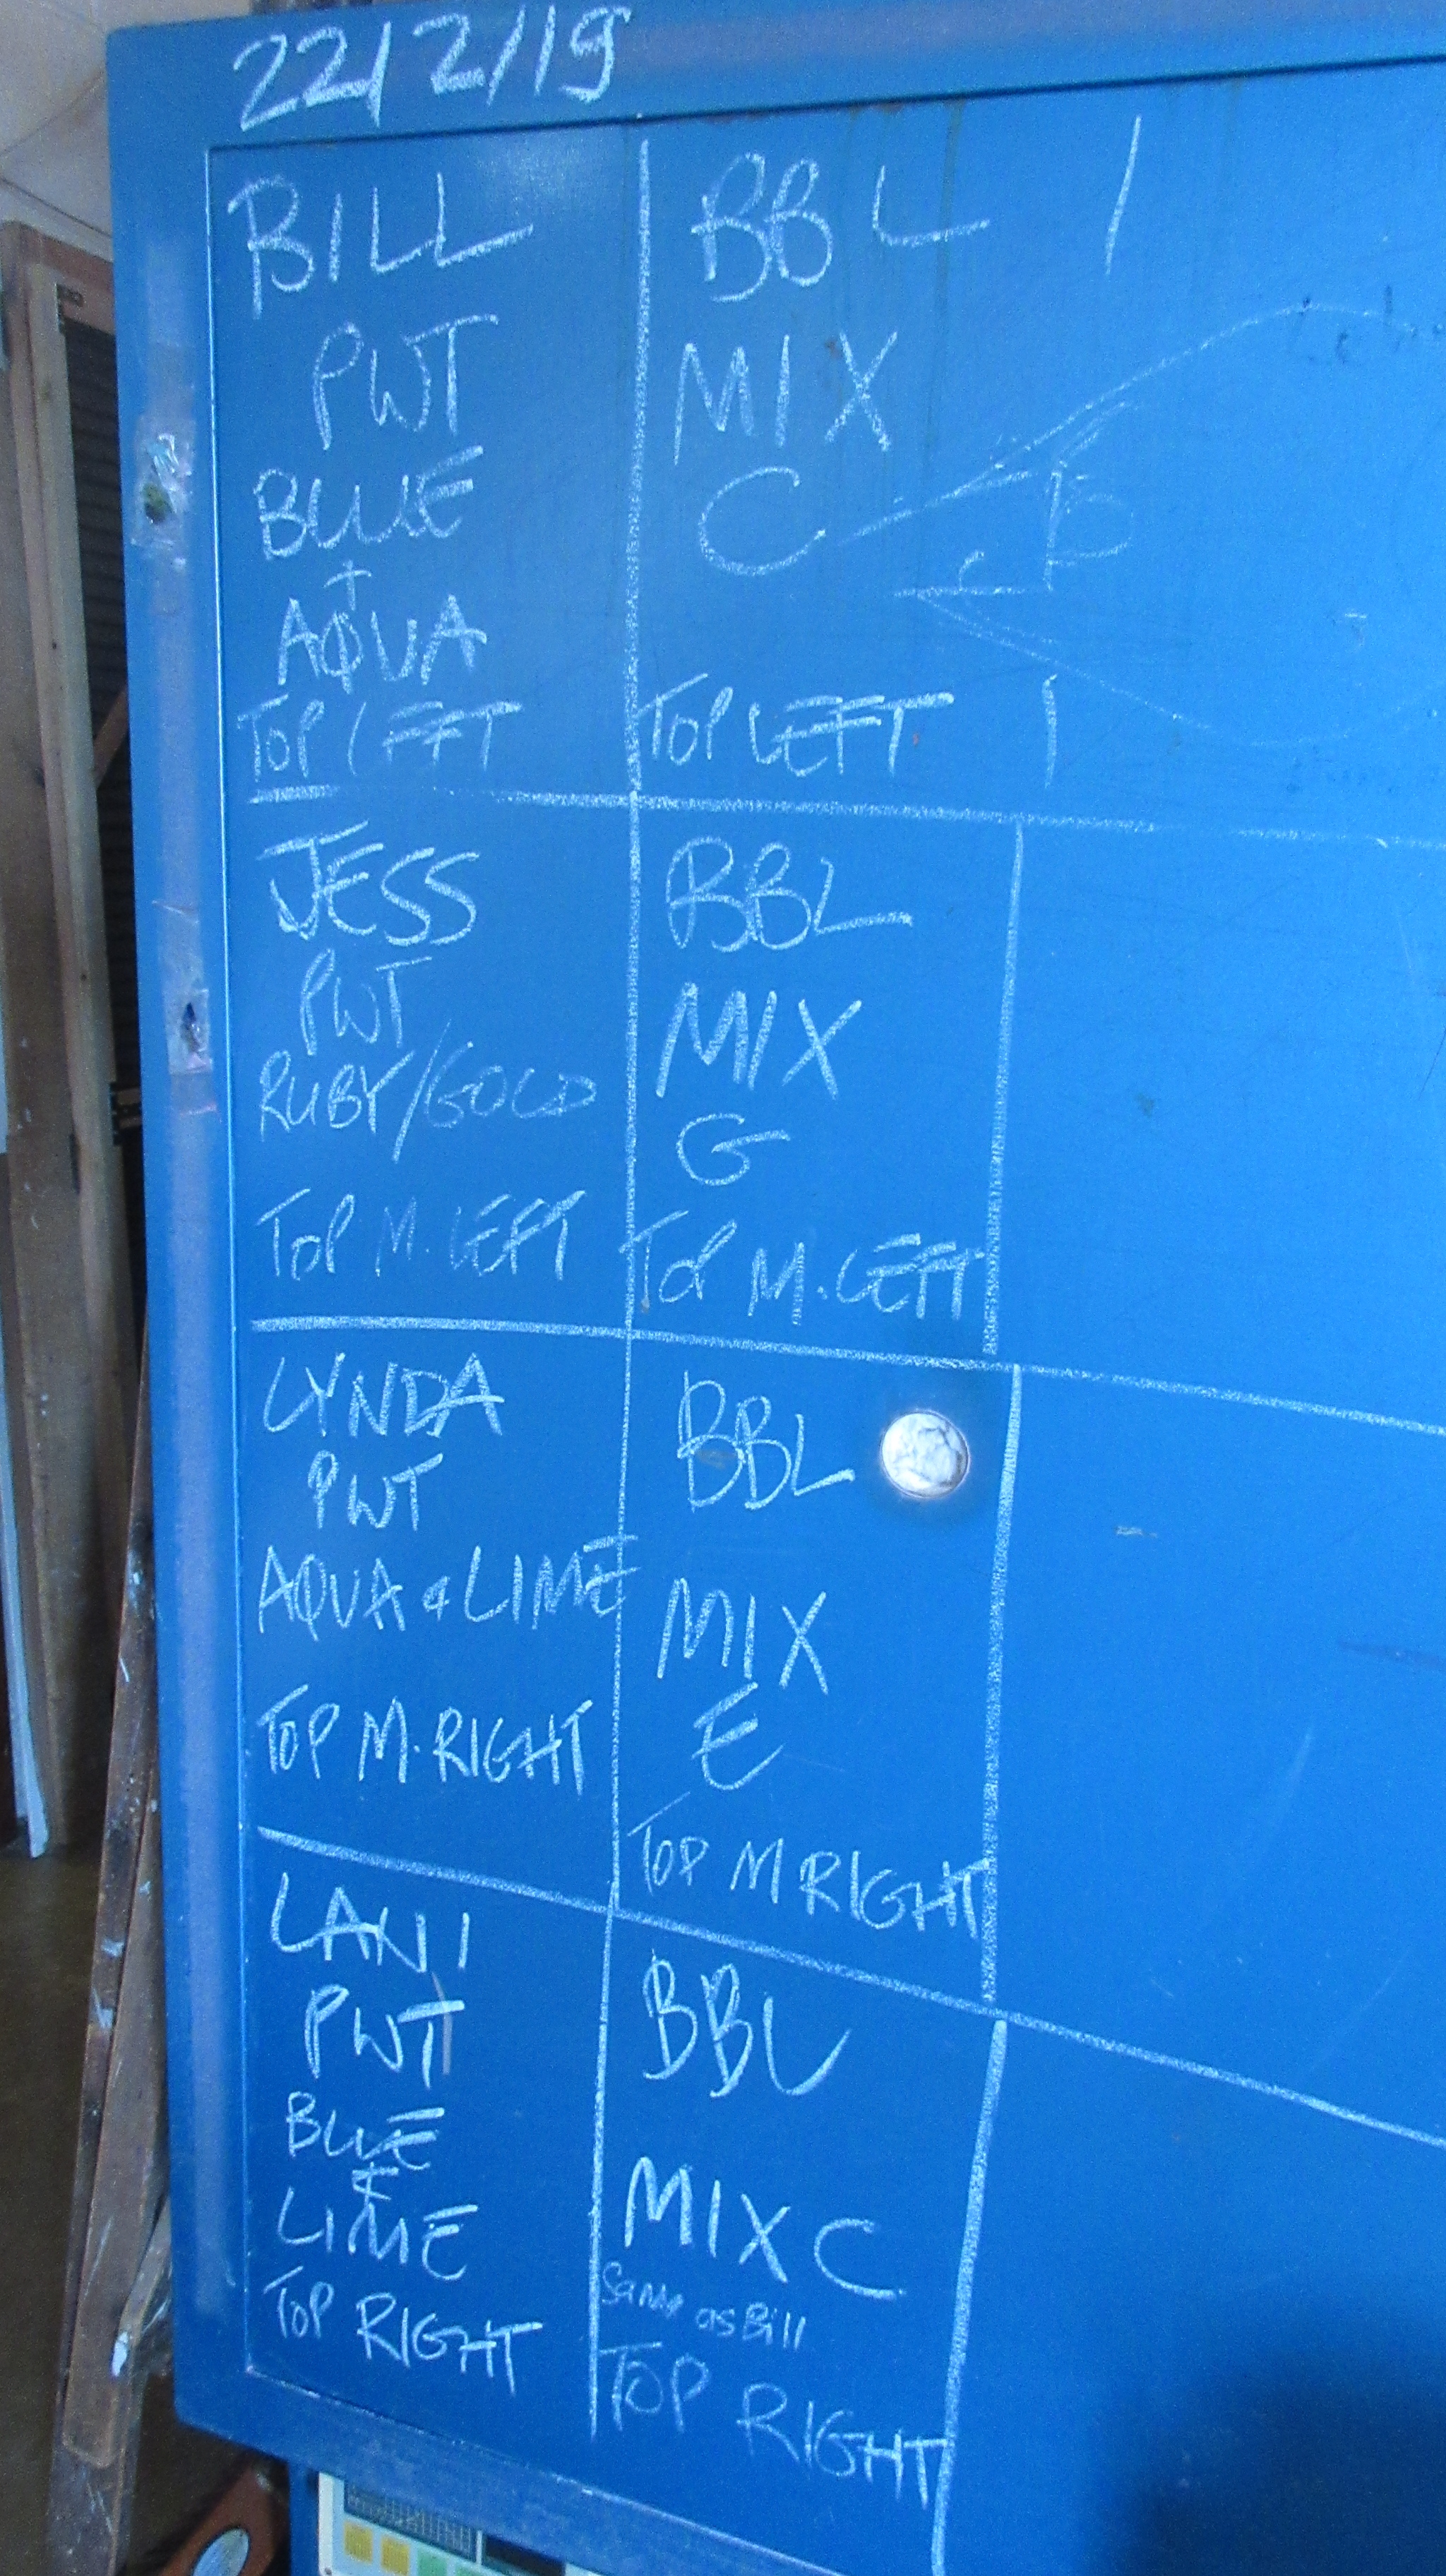 22/2/19
BILL
PWT
BLUE
+
AQUA
TOP LEFT
BBL
MIX
C
TOP LEFT
JESS
PWT
RUBY/GOLD
TOP M. LEFT
BBL
MIX
G
TOP M. LEFT
LYNDA
PWT
AQUA & LIME
TOP M. RIGHT
BBL
MIX
E
TOP M RIGHT
LANI
PWT
BLUE
&
LIME
TOP RIGHT
BBL
MIX C
Same as Bill
TOP RIGHT